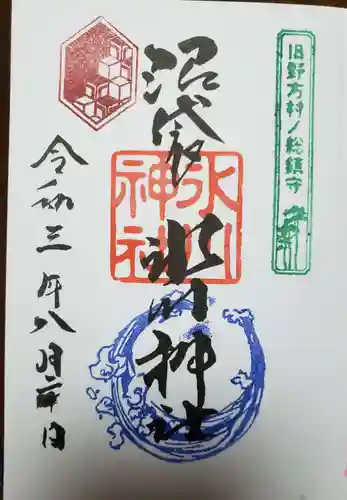 旧野方村ノ総鎮守
沼袋氷川神社
氷川神社
令和三年八月二十日